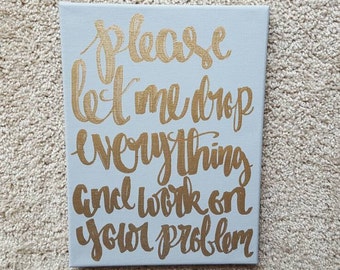 please
let me drop
everything
and work on
your problem